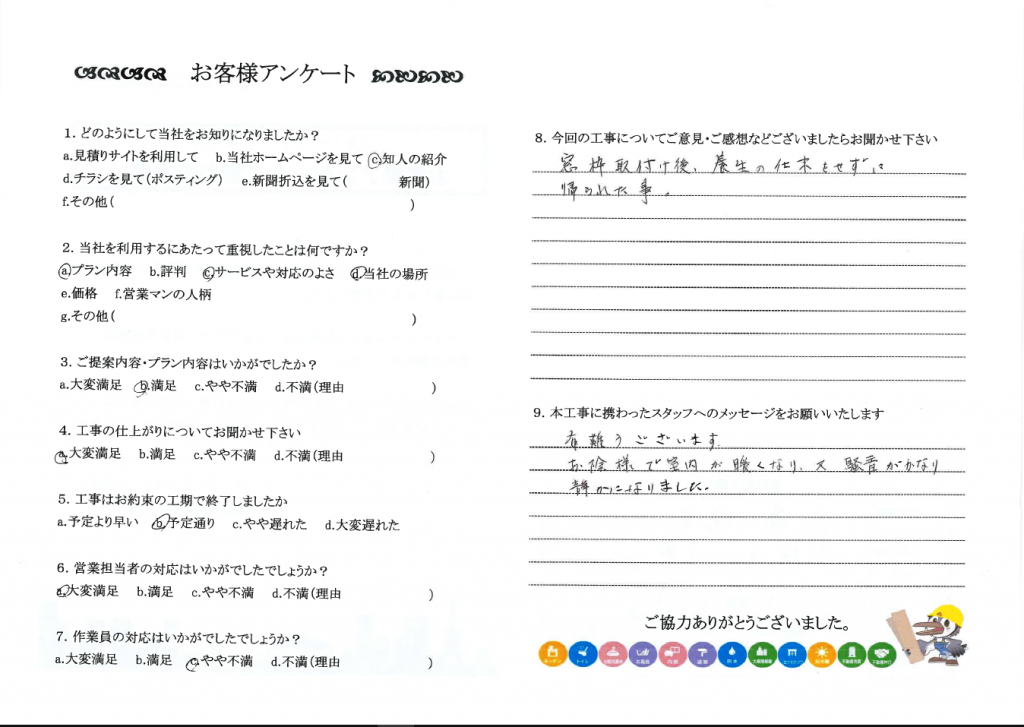 お客様アンケート
1．どのようにして当社をお知りになりましたか？
a.見積りサイトを利用して　b.当社ホームページを見て　c.知人の紹介
d.チラシを見て（ポスティング）　e.新聞折込を見て（　　　新聞）
f.その他（　　　）
2．当社を利用するにあたって重視したことは何ですか？
a.プラン内容　b.評判　c.サービスや対応のよさ　d.当社の場所
e.価格　f.営業マンの人柄
g.その他（　　　）
3．ご提案内容・プラン内容はいかがでしたか？
a.大変満足　b.満足　c.やや不満　d.不満（理由　　　）
4．工事の仕上がりについてお聞かせ下さい
a.大変満足　b.満足　c.やや不満　d.不満（理由　　　）
5．工事はお約束の工期で終了しましたか
a.予定より早い　b.予定通り　c.やや遅れた　d.大変遅れた
6．営業担当者の対応はいかがでしたでしょうか？
a.大変満足　b.満足　c.やや不満　d.不満（理由　　　）
7．作業員の対応はいかがでしたでしょうか？
a.大変満足　b.満足　c.やや不満　d.不満（理由　　　）
8．今回の工事についてご意見・ご感想などございましたらお聞かせ下さい
窓枠取付け後、養生の仕末をせずに
帰られた事。
9．本工事に携わったスタッフへのメッセージをお願いいたします
有難うございます。
お陰様で室内が暖くなり、又騒音がかなり
静かになりました。
ご協力ありがとうございました。
キッチン　トイレ　お風呂　内装　塗装　防水